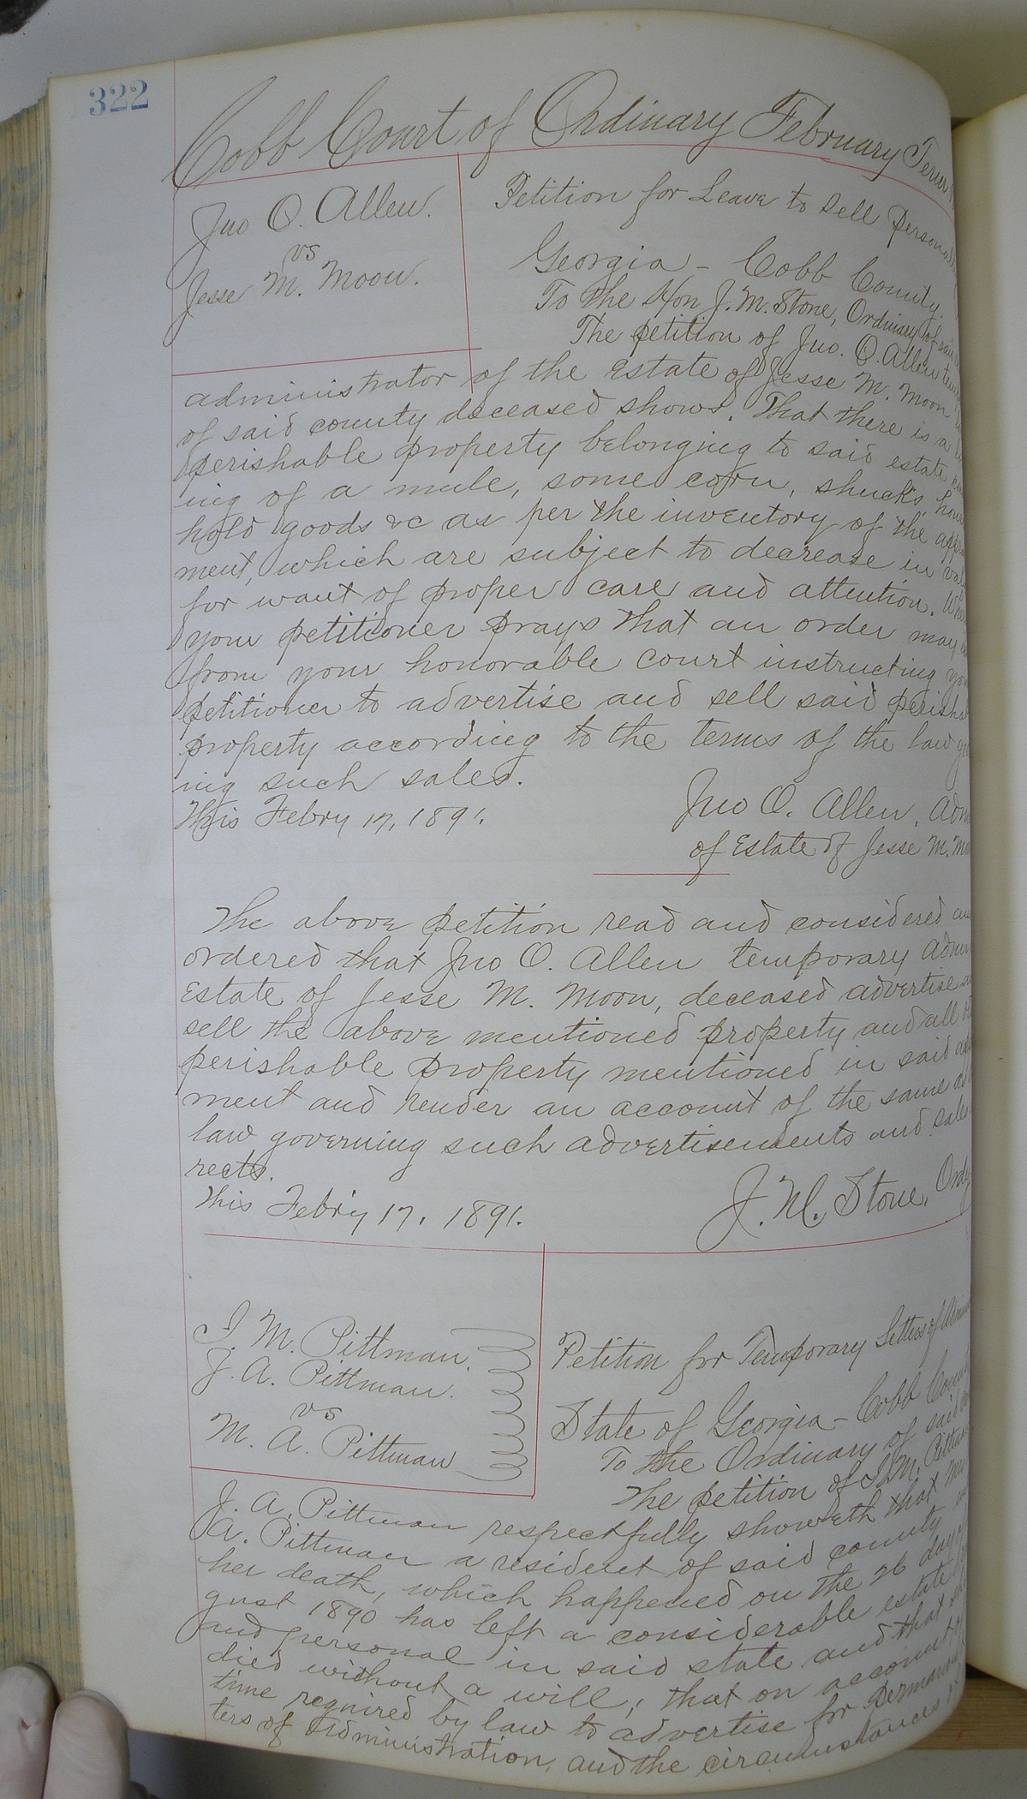 322
Cobb Court of Ordinary February Term
Jno O. Allen.
vs
Jesse M. Moon.
Petition for Leave to Sell Personal
Georgia - Cobb County.
To the Hon J. M. Stone, Ordinary of said
The petition of Jno. O. Allen
administrator of the Estate of Jesse M. Moon
of said county deceased shows. That there is a
perishable property belonging to said estate
ing of a mule, some corn, shucks, house
hold goods &c as per the inventory of the
ment, which are subject to decrease in val
for want of proper care and attention.
your petitioner prays that an order may
from your honorable court instructing
petitioner to advertise and sell said perisha
property according to the terms of the law
ing such sales.
This Febry 17, 1891.
Jno O. Allen, Adm
of Estate of Jesse M. Mo
The above petition read and considered
ordered that Jno O. Allen temporary Admr
Estate of Jesse M. Moon, deceased advertise
sell the above mentioned property and all
perishable property mentioned in said
ment and render an account of the same as
law governing such advertisements and sales
rects.
This Febr'y 17, 1891.
J. M. Stone, Ordy
M. Pittman.
J. A. Pittman.
vs
M. A. Pittman
Petition for Temporary Letters of
State of Georgia - Cobb
To the Ordinary of said
The petition of M.
J. A. Pittman respectfully showeth that
A. Pittman a resident of said county
her death, which happened on the 26 day
gust 1890 has left a considerable estate
and personal in said state and that
died without a will; that on account
time required by law to advertise for Permanent
ters of Administration, and the circumstances